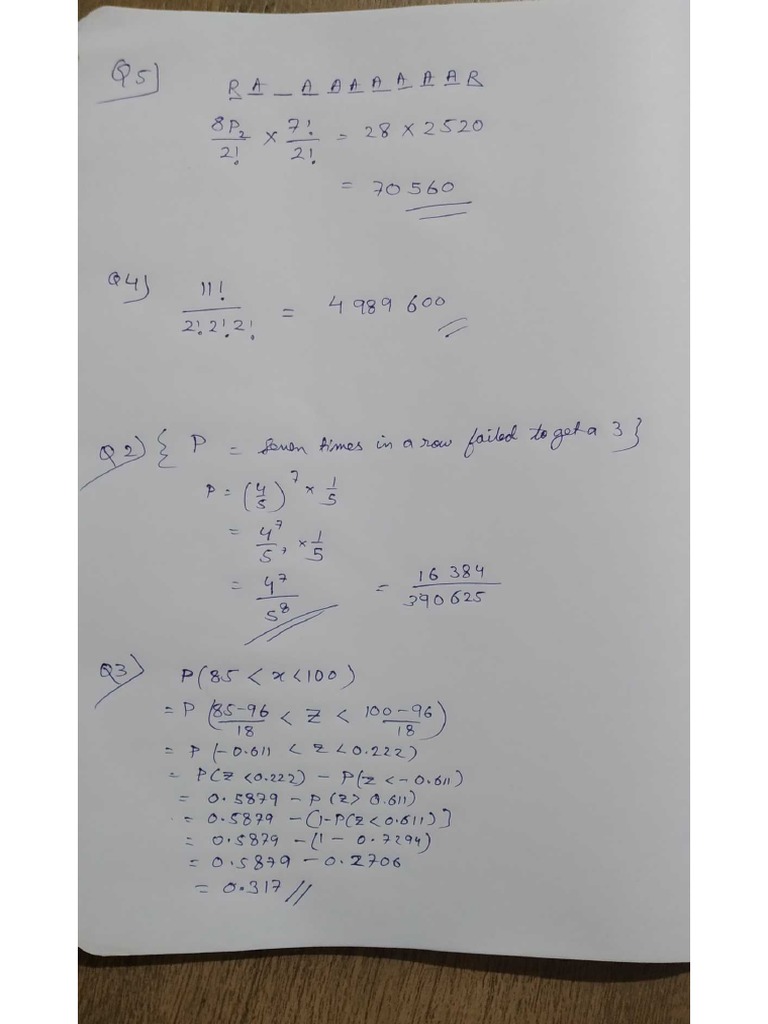 Q5)
R A _ A A A A A A A R
8P₂/2! × 7!/2! = 28 × 2520
= 70560
Q4) 11!/2!2!2! = 4989600
Q2) { P = seven times in a row failed to get a 3 }
P = (4/5)⁷ × 1/5
= 4⁷/5⁷ × 1/5
= 4⁷/5⁸ = 16384/390625
Q3) P(85 < x < 100)
= P(85-96/18 < Z < 100-96/18)
= P(-0.611 < Z < 0.222)
= P(Z < 0.222) - P(Z < -0.611)
= 0.5879 - P(Z > 0.611)
= 0.5879 - (1-P(Z < 0.611)]
= 0.5879 - (1 - 0.7294)
= 0.5879 - 0.2706
= 0.317 //